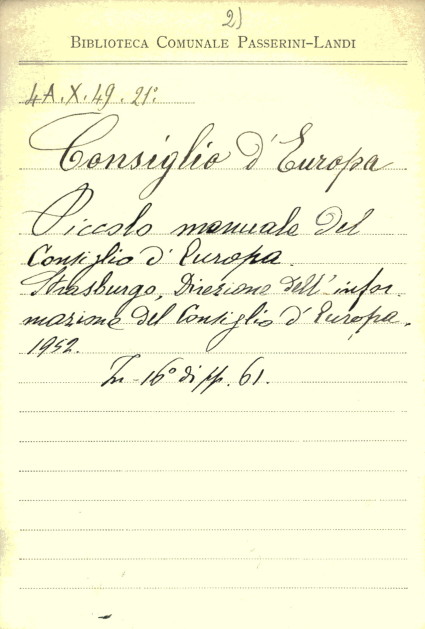 2)
BIBLIOTECA COMUNALE PASSERINI-LANDI
4A.X.49.21º.
Consiglio d'Europa
Piccolo manuale del
Consiglio d'Europa.
Strasburgo, Direzione dell'infor-
mazione del Consiglio d'Europa.
1952.
In-16º di pp. 61.